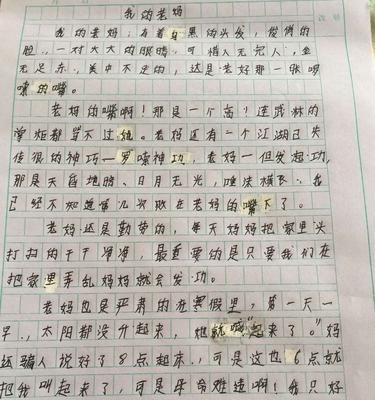 我的老妈
我的老妈，有着乌黑的头发，俊俏的
脸，一对大大的眼睛，可惜人无完人，金
无足赤，美中不足的，这是老妈那一张啰
嗦的嘴。
老妈的嘴啊！那是一个高！连武林的
掌柜都骂不过她。老妈还有一个江湖已失
传很的神巧一罗嗦神功，老妈一但发起功，
那是天昏地暗、日月无光，唾沫横飞、我
已经不知道第几次败在老妈的嘴下了。
老妈还是勤劳的，每天妈妈把家里头
打扫的干干净净，最重要的是只要我们在
把家里弄乱妈妈就会发功。
老妈也是严肃的在寒假里，第一天一
早，太阳都没升起来，她就喊"起来了。"妈
还骗人说好了8点起来，可是这也6点就
把我叫起来了，可是早命难违啊！我只好